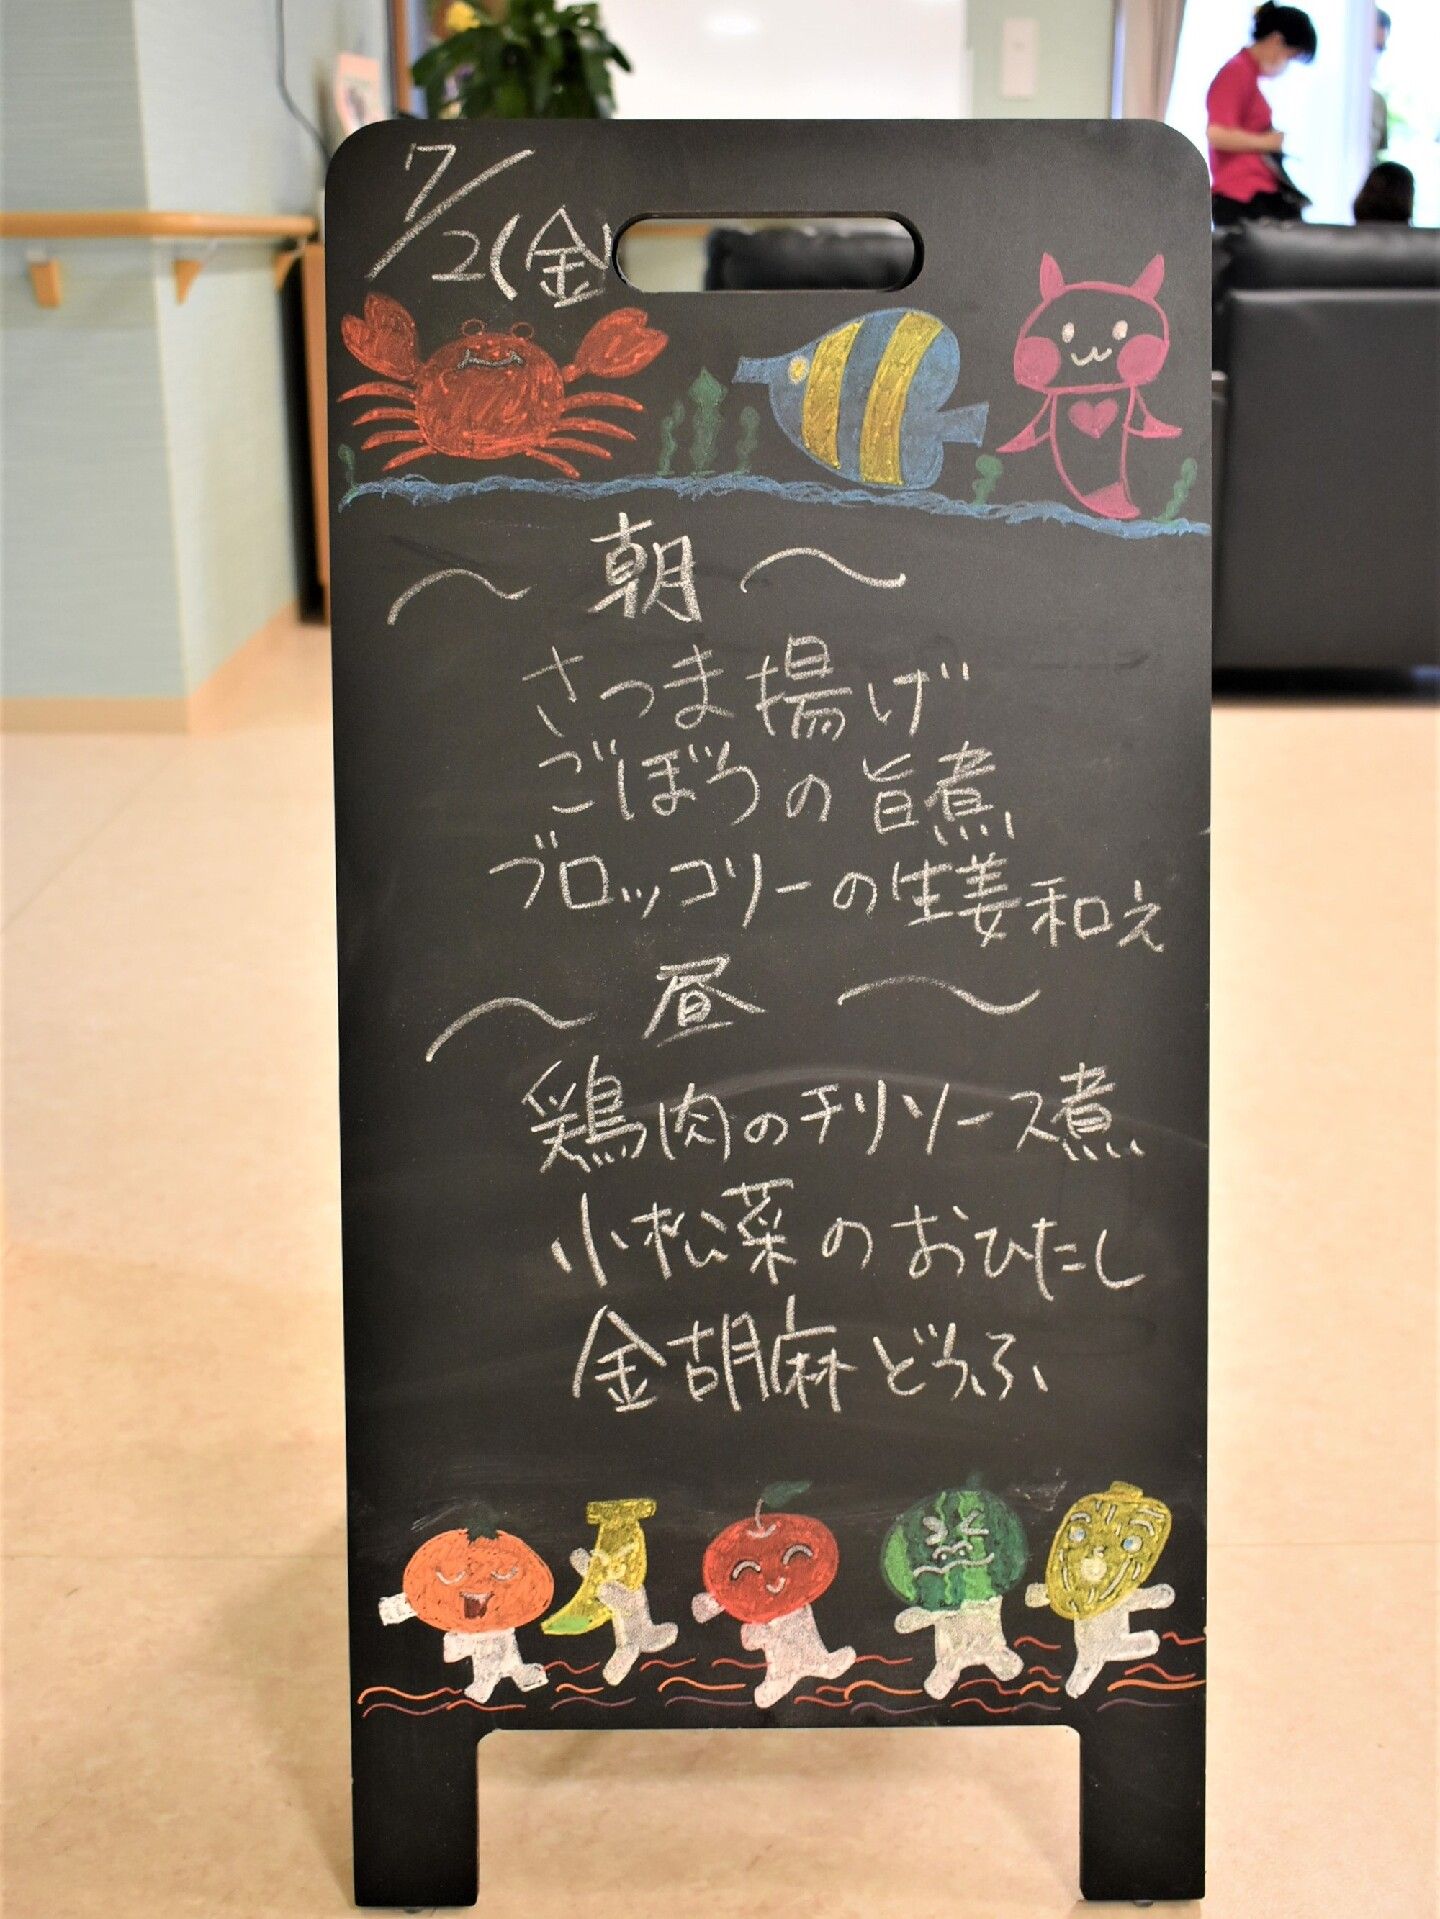 7/2(金)
～朝～
さつま揚げ
ごぼうの旨煮
ブロッコリーの生姜和え
～昼～
鶏肉のチリソース煮
小松菜のおひたし
金胡麻どうふ